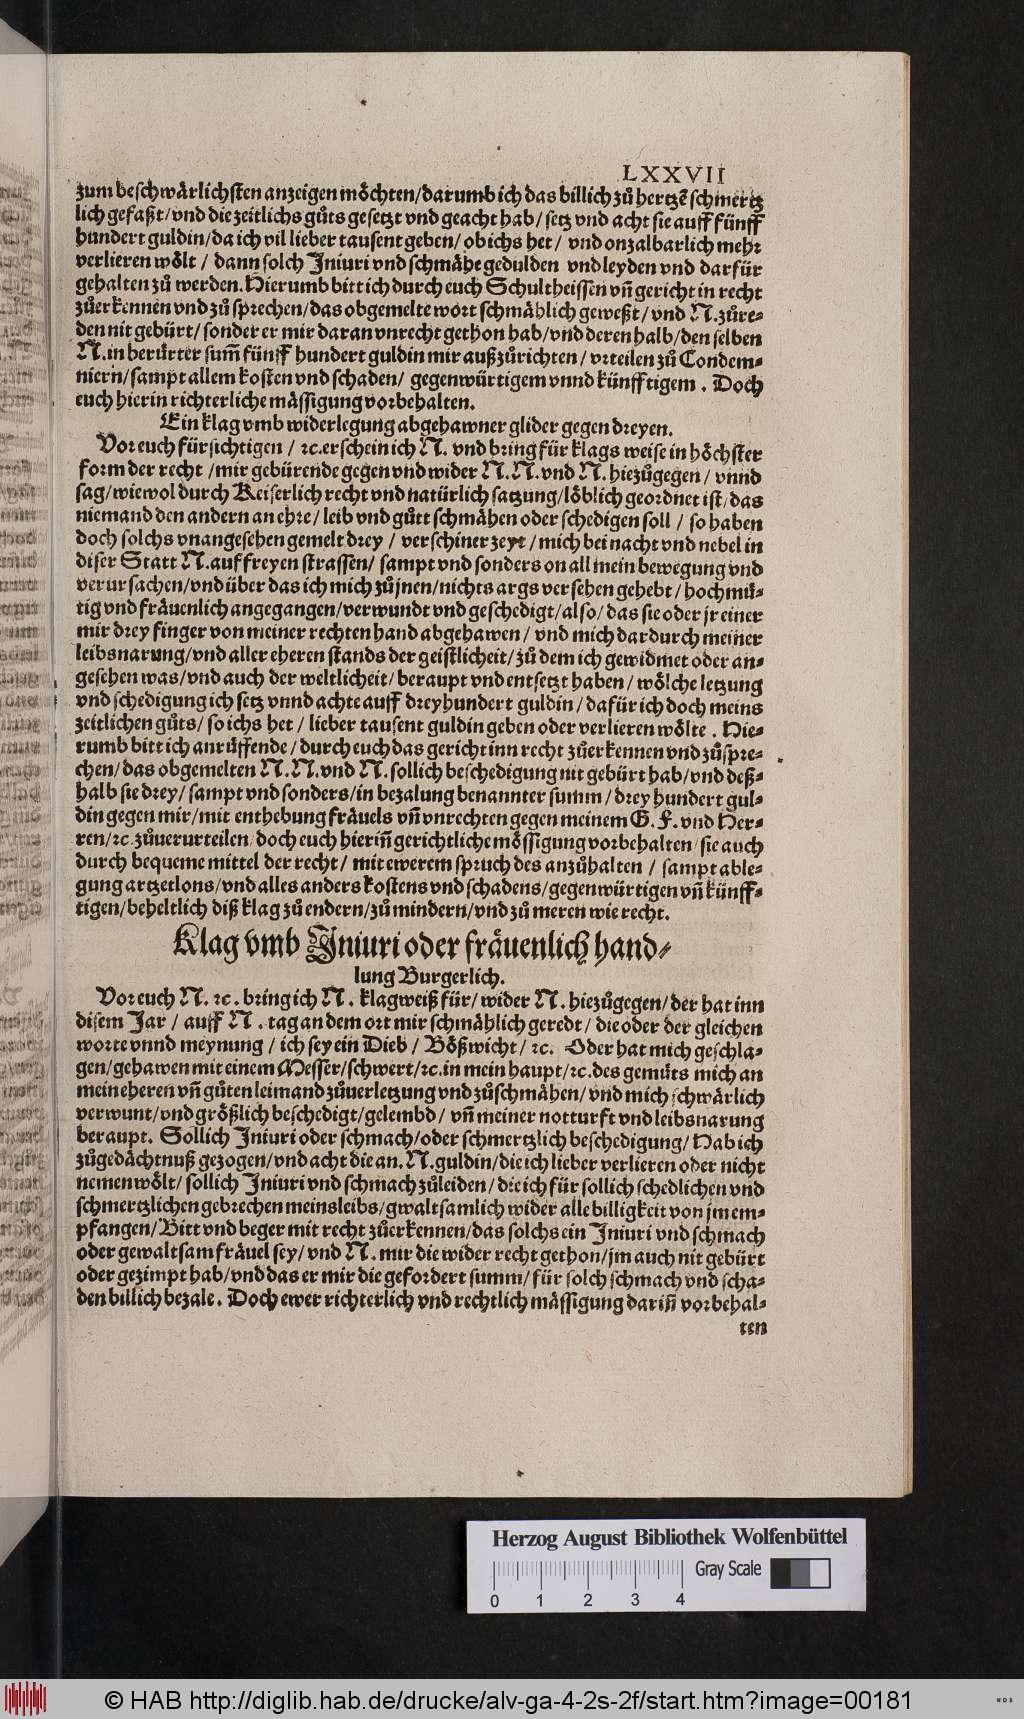 LXXVII
zum beschwärlichsten anzeigen möchten/darumb ich das billich zů hertzẽ schmertz
lich gefaßt/vnd die zeitlichs gůts gesetzt vnd geacht hab/setz vnd acht sie auff fünff
hundert guldin/da ich vil lieber tausent geben/ ob ichs het/ vnd onzalbarlich mehr
verlieren wölt / dann solch Iniuri vnd schmähe gedulden vnd leyden vnd darfür
gehalten zů werden. Hierumb bitt ich durch euch Schultheissen vñ gericht in recht
zůerkennen vnd zů sprechen/das obgemelte wort schmählich geweßt/ vnd N. zůre-
den nit gebürt/ sonder er mir daran vnrecht gethon hab/vnd deren halb/den selben
N. in berürter sum̃ fünff hundert guldin mir außzůrichten/ vrteilen zů Condem-
niern/sampt allem kosten vnd schaden/ gegenwürtigem vnnd künfftigem . Doch
euch hierin richterliche mässigung vorbehalten.
Ein klag vmb widerlegung abgehawner glider gegen dreyen.
Vor euch fürsichtigen / ꝛc. erschein ich N. vnd bring für klags weise in höchster
form der recht /mir gebürende gegen vnd wider N. N. vnd N. hiezůgegen/ vnnd
sag/wiewol durch Keiserlich recht vnd natürlich satzung/löblich geordnet ist/das
niemand den andern an ehre/leib vnd gůtt schmähen oder schedigen soll / so haben
doch solchs vnangesehen gemelt drey / verschiner zeyt / mich bei nacht vnd nebel in
diser Statt N. auf freyen strassen/ sampt vnd sonders on all mein bewegung vnd
verursachen/vnd über das ich mich zůjnen/nichts args versehen gehebt/ hochmü-
tig vnd fräuenlich angegangen/verwundt vnd geschedigt/also/das sie oder jr einer
mir drey finger von meiner rechten hand abgehawen/ vnd mich dardurch meiner
leibsnarung/vnd aller eheren stands der geistlicheit/zů dem ich gewidmet oder an-
gesehen was/vnd auch der weltlicheit/ beraupt vnd entsetzt haben/ wölche letzung
vnd schedigung ich setz vnnd achte auff dreyhundert guldin/ dafür ich doch meins
zeitlichen gůts/ so ichs het / lieber tausent guldin geben oder verlieren wölte . Hie-
rumb bitt ich anrůffende / durch euch das gericht inn recht zůerkennen vnd zůspre-
chen/das obgemelten N. N. vnd N. sollich beschedigung nit gebürt hab/vnd deß-
halb sie drey/ sampt vnd sonders/in bezalung benannter summ/drey hundert gul-
din gegen mir/mit enthebung fräuels vñ vnrechten gegen meinem G. F. vnd Her-
ren/ꝛc. zůuerurteilen/doch euch hieriñ gerichtliche mössigung vorbehalten/sie auch
durch bequeme mittel der recht/ mit ewerem spruch des anzůhalten / sampt able-
gung artzetlons/vnd alles anders kostens vnd schadens/gegenwürtigen vñ künff-
tigen/beheltlich diß klag zů endern/zů mindern/vnd zů meren wie recht.
Klag vmb Iniuri oder fräuenlich hand-
lung Burgerlich.
Vor euch N. ꝛc. bring ich N. klagweiß für/ wider N. hiezůgegen/der hat inn
disem Jar / auff N . tag an dem ort mir schmählich geredt/die oder der gleichen
worte vnnd meynung / ich sey ein Dieb / Bößwicht/ ꝛc. Oder hat mich geschla-
gen/gehawen mit einem Messer/schwert/ꝛc. in mein haupt/ꝛc. des gemüts mich an
mein eheren vñ gůten leimand zůuerletzung vnd zůschmähen/ vnd mich schwärlich
verwunt/vnd größlich beschedigt/gelembd / vñ meiner notturft vnd leibsnarung
beraupt. Sollich Iniuri oder schmach/oder schmertzlich beschedigung/ Hab ich
zůgedächtnuß gezogen/vnd acht die an. N. guldin/die ich lieber verlieren oder nicht
nemen wölt/ sollich Iniuri vnd schmach zůleiden/die ich für sollich schedlichen vnd
schmertzlichen gebrechen meins leibs/gwaltsamlich wider alle billigkeit von jm em-
pfangen/Bitt vnd beger mit recht zůerkennen/das solchs ein Iniuri vnd schmach
oder gewaltsam fräuel sey/vnd N. mir die wider recht gethon/jm auch nit gebürt
oder gezimpt hab/vnd das er mir die gefordert summ/für solch schmach vnd scha-
den billich bezale. Doch ewer richterlich vnd rechtlich mässigung dariñ vorbehal-
ten
Herzog August Bibliothek Wolfenbüttel
Gray Scale
0 1 2 3 4
© HAB http://diglib.hab.de/drucke/alv-ga-4-2s-2f/start.htm?image=00181